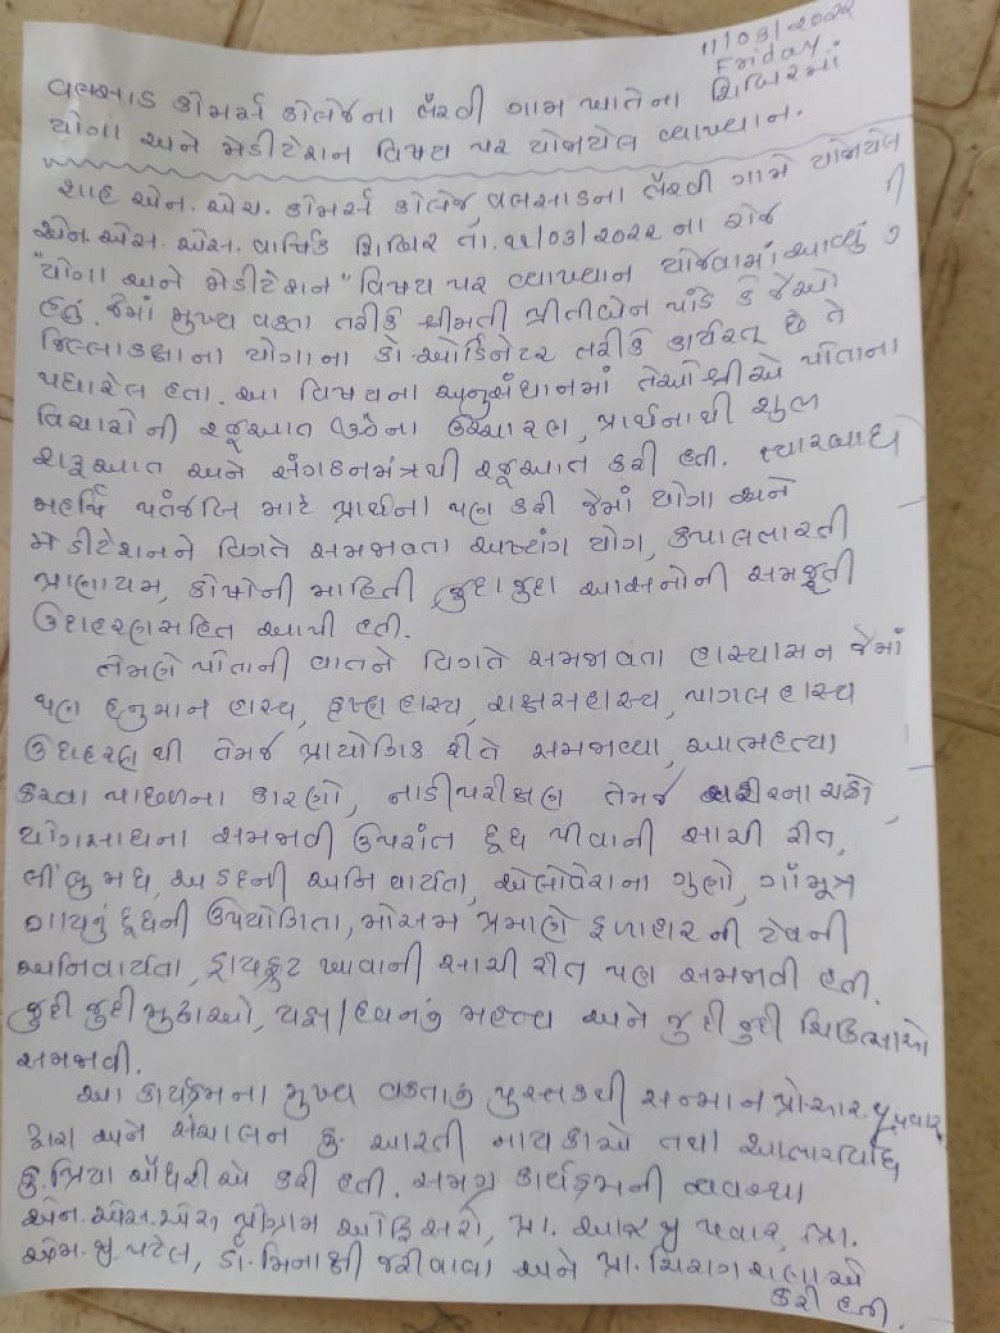 11/03/2022
Friday
વલસાડ કોમર્સ કોલેજના ભૈરવી ગામ ખાતેના શિબિરમાં
યોગા અને મેડીટેશન વિષય પર યોજાયેલ વ્યાખ્યાન.
શાહ એન. એચ. કોમર્સ કોલેજ, વલસાડના ભૈરવી ગામે યોજાયેલ
એન. એસ. એસ. વાર્ષિક શિબિર તા. ૧૧/03/૨૦૨૨ ના રોજ
"યોગા અને મેડીટેશન" વિષય પર વ્યાખ્યાન યોજવામાં આવ્યું
હતું. જેમાં મુખ્ય વક્તા તરીકે શ્રીમતી પ્રીતીબેન પાંડે કે જેઓ
જિલ્લાકક્ષાના યોગાના કો-ઓર્ડિનેટર તરીકે કાર્યરત્ છે તે
પધારેલ હતા. આ વિષયના અનુસંધાનમાં તેઓશ્રીએ પોતાના
વિચારોની રજૂઆત ઉચ્ચારણ, પ્રાર્થનાથી શુભ
શરૂઆત અને સંગઠનમંત્રથી રજૂઆત કરી હતી. ત્યારબાદ
મહર્ષિ પતંજલિ માટે પ્રાર્થના પણ કરી જેમાં યોગા અને
મેડીટેશનને વિગતે સમજાવતા અષ્ટાંગ યોગ, કપાલભારતી
પ્રાણાયમ, કોષોની માહિતી જુદા જુદા આસનોની સમજૂતી
ઉદાહરણસહિત આપી હતી.
તેમણે પોતાની વાતને વિગતે સમજાવતા હાસ્યાસન જેમાં
પણ હનુમાન હાસ્ય, કૃષ્ણ હાસ્ય, રાક્ષસહાસ્ય, પાગલ હાસ્ય
ઉદાહરણ થી તેમજ પ્રાયોગિક રીતે સમજાવ્યા, આત્મહત્યા
કરવા પાછળના કારણો, નાડીપરીક્ષણ તેમજ શરીરના ચક્રો,
યોગસાધના સમજાવી ઉપરાંત દૂધ પીવાની સાચી રીત,
લીંબુ મધ, અડદની અનિવાર્યતા, એલોવેરાના ગુણો, ગૌમૂત્ર
ગાયનું દૂધની ઉપયોગિતા, મોસમ પ્રમાણે ફળાહાર ની ટેવની
અનિવાર્યતા, ડ્રાયફ્રુટ ખાવાની સાચી રીત પણ સમજાવી હતી.
જુદી જુદી મુદ્રાઓ, યજ્ઞ/હવનનું મહત્વ અને જુદી જુદી ચિકિત્સાઓ
સમજાવી.
આ કાર્યક્રમના મુખ્ય વક્તાનું પુસ્તકથી સન્માન પ્રો.આર.જી.પવાર
દ્વારા અને સંચાલન કુ. આરતી નાયકાએ તથા આભારવિધિ
કુ. પ્રિયા ચૌધરીએ કરી હતી. સમગ્ર કાર્યક્રમની વ્યવસ્થા
એન. એસ. એસ પ્રોગ્રામ ઓફિસરો, પ્રા. આર જી પવાર, પ્રા.
એમ. જી. પટેલ, ડૉ. મિનાક્ષી જરીવાલા અને પ્રા. ચિરાગ રાણાએ
કરી હતી.